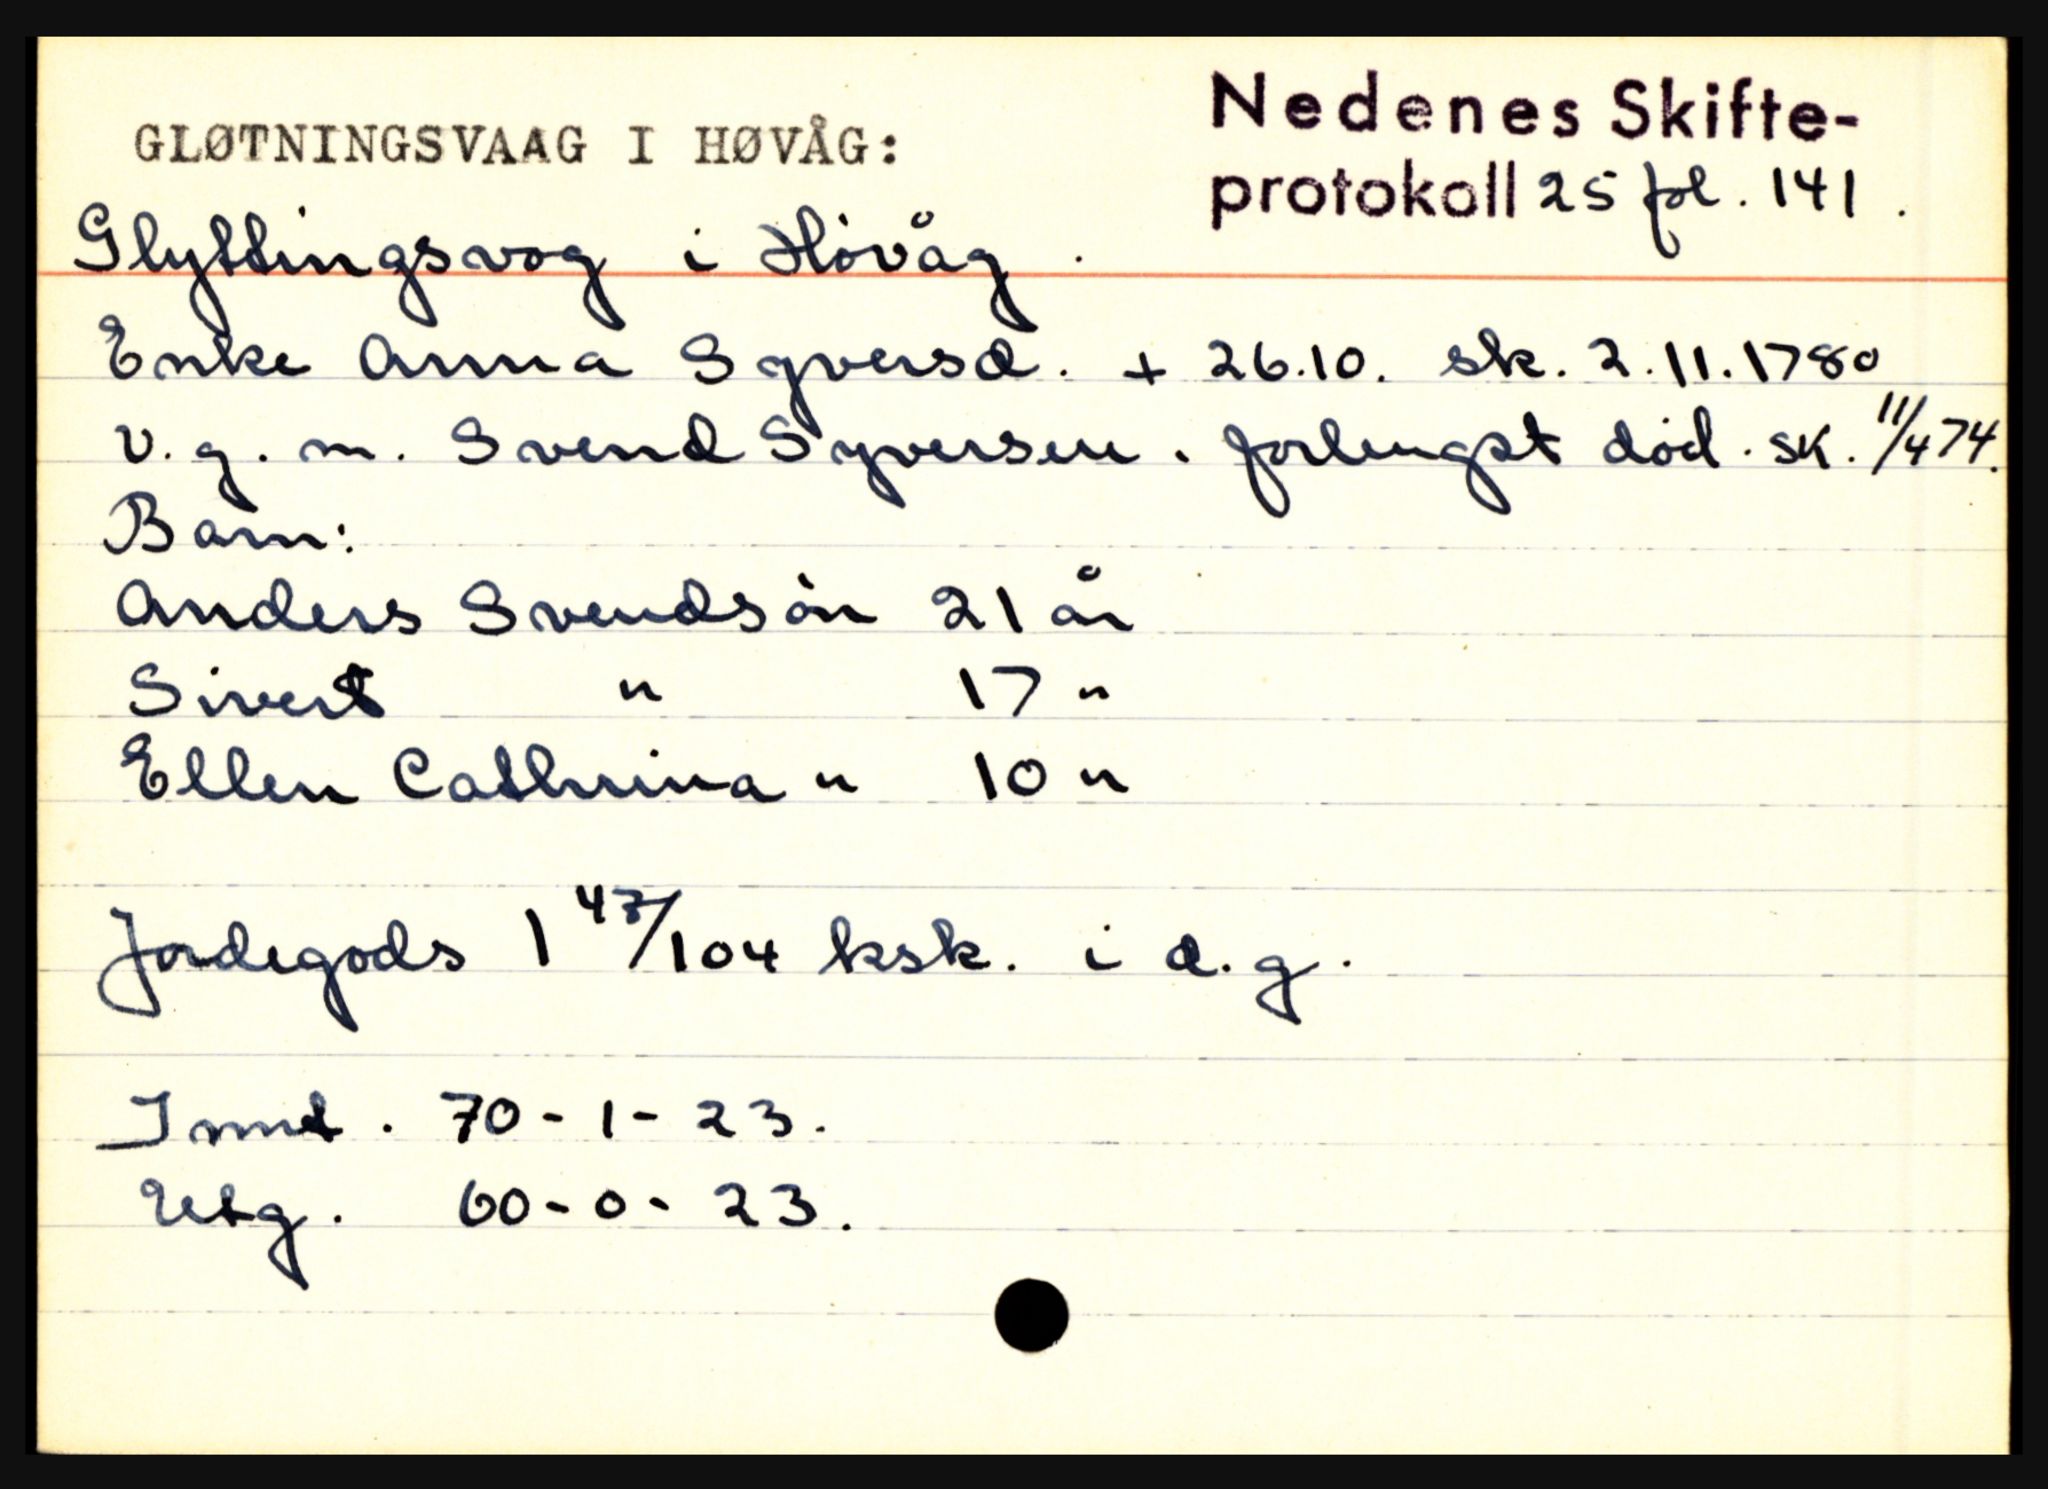 GLØTNINGSVAAG I HØVÅG:
Nedenes Skifte-
protokoll 25 fol. 141.
Glyttingsvog i Høvåg.
Enke Anna Syversd. + 26.10. sk. 2.11.1780
v. g. m. Svend Syversen. forlengst død. sk. 11/4 74.
Barn:
Anders Svendsøn 21 år
Sivert " 17 "
Ellen Cathrina " 10 "
Jordegods 1 47/104 ksk. i d. g.
Innt. 70-1-23.
Utg. 60-0-23.